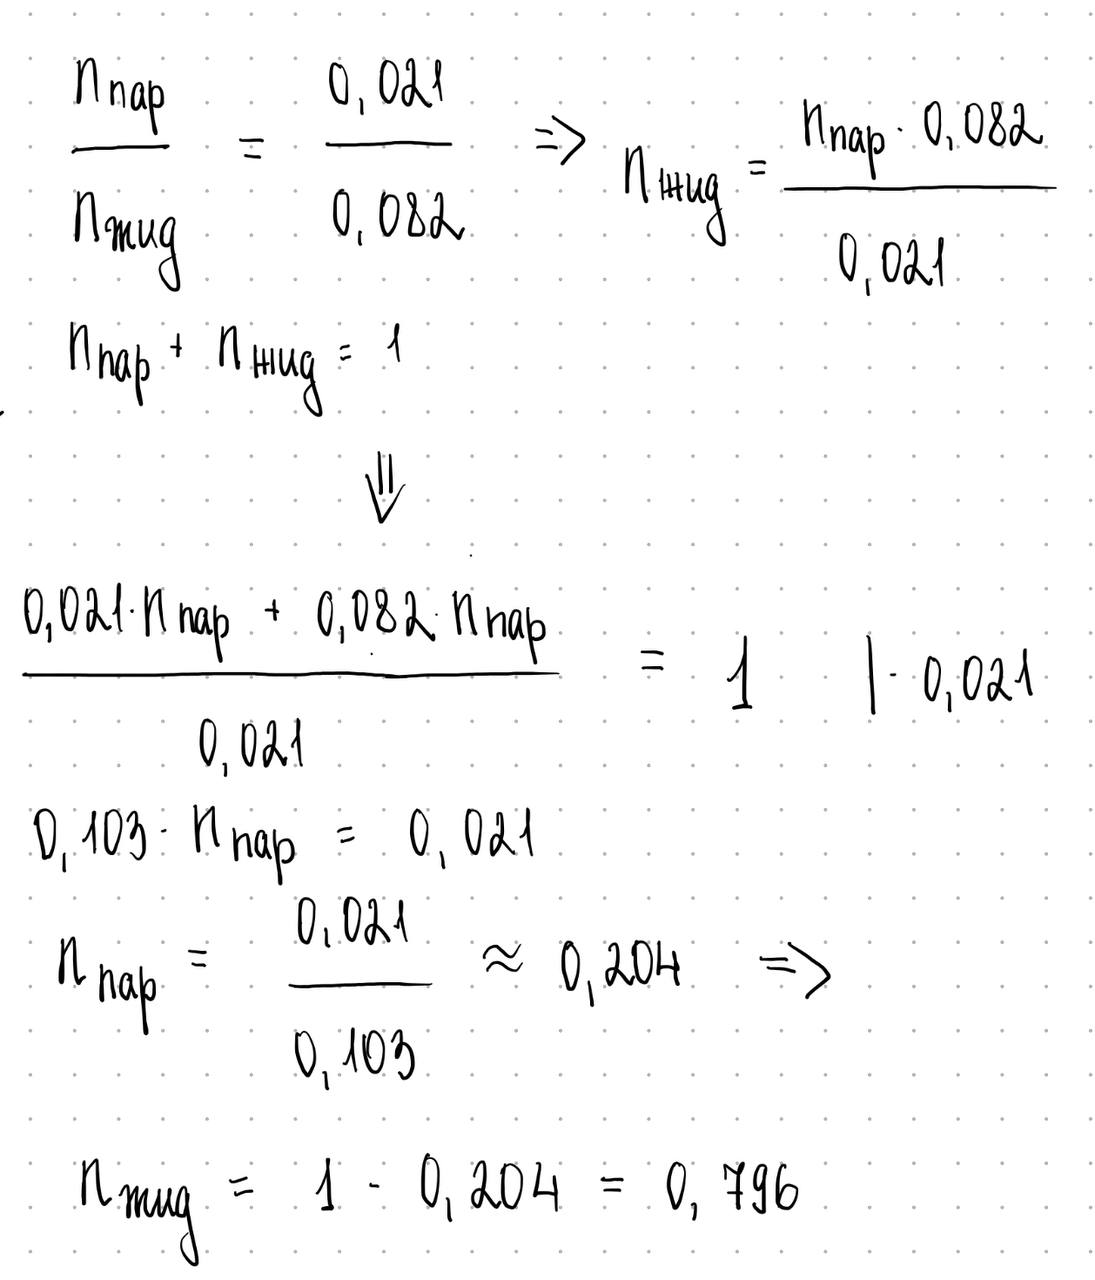 n пар / n жид = 0,021 / 0,082 => n жид = n пар · 0,082 / 0,021
n пар + n жид = 1
⇓
0,021 · n пар + 0,082 · n пар / 0,021 = 1 | · 0,021
0,103 · n пар = 0,021
n пар = 0,021 / 0,103 ≈ 0,204 =>
n жид = 1 - 0,204 = 0,796